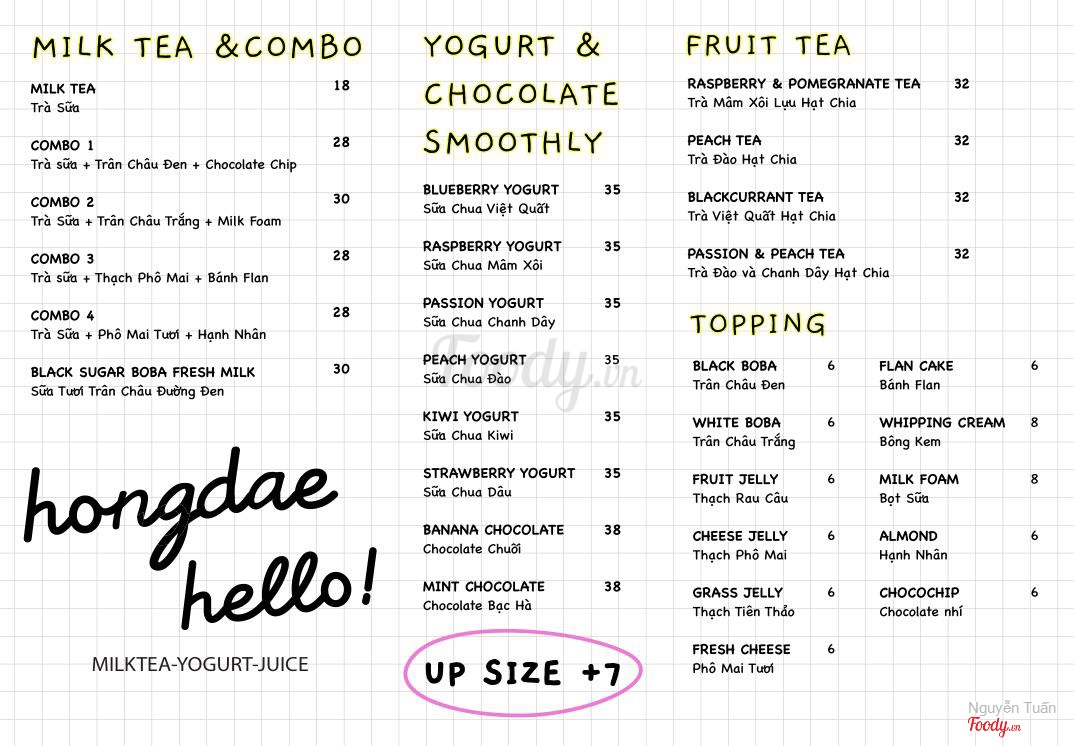 MILK TEA &COMBO
MILK TEA 18
Trà Sữa
COMBO 1 28
Trà sữa + Trân Châu Đen + Chocolate Chip
COMBO 2 30
Trà Sữa + Trân Châu Trắng + Milk Foam
COMBO 3 28
Trà sữa + Thạch Phô Mai + Bánh Flan
COMBO 4 28
Trà Sữa + Phô Mai Tươi + Hạnh Nhân
BLACK SUGAR BOBA FRESH MILK 30
Sữa Tươi Trân Châu Đường Đen
hongdae
hello!
MILKTEA-YOGURT-JUICE
YOGURT &
CHOCOLATE
SMOOTHLY
BLUEBERRY YOGURT 35
Sữa Chua Việt Quất
RASPBERRY YOGURT 35
Sữa Chua Mâm Xôi
PASSION YOGURT 35
Sữa Chua Chanh Dây
PEACH YOGURT 35
Sữa Chua Đào
KIWI YOGURT 35
Sữa Chua Kiwi
STRAWBERRY YOGURT 35
Sữa Chua Dâu
BANANA CHOCOLATE 38
Chocolate Chuối
MINT CHOCOLATE 38
Chocolate Bạc Hà
UP SIZE +7
FRUIT TEA
RASPBERRY & POMEGRANATE TEA 32
Trà Mâm Xôi Lựu Hạt Chia
PEACH TEA 32
Trà Đào Hạt Chia
BLACKCURRANT TEA 32
Trà Việt Quất Hạt Chia
PASSION & PEACH TEA 32
Trà Đào và Chanh Dây Hạt Chia
TOPPING
BLACK BOBA 6
Trân Châu Đen
WHITE BOBA 6
Trân Châu Trắng
FRUIT JELLY 6
Thạch Rau Câu
CHEESE JELLY 6
Thạch Phô Mai
GRASS JELLY 6
Thạch Tiên Thảo
FRESH CHEESE 6
Phô Mai Tươi
FLAN CAKE 6
Bánh Flan
WHIPPING CREAM 8
Bông Kem
MILK FOAM 8
Bọt Sữa
ALMOND 6
Hạnh Nhân
CHOCOCHIP 6
Chocolate nhí
Foody.vn
Nguyễn Tuấn
Foody.vn